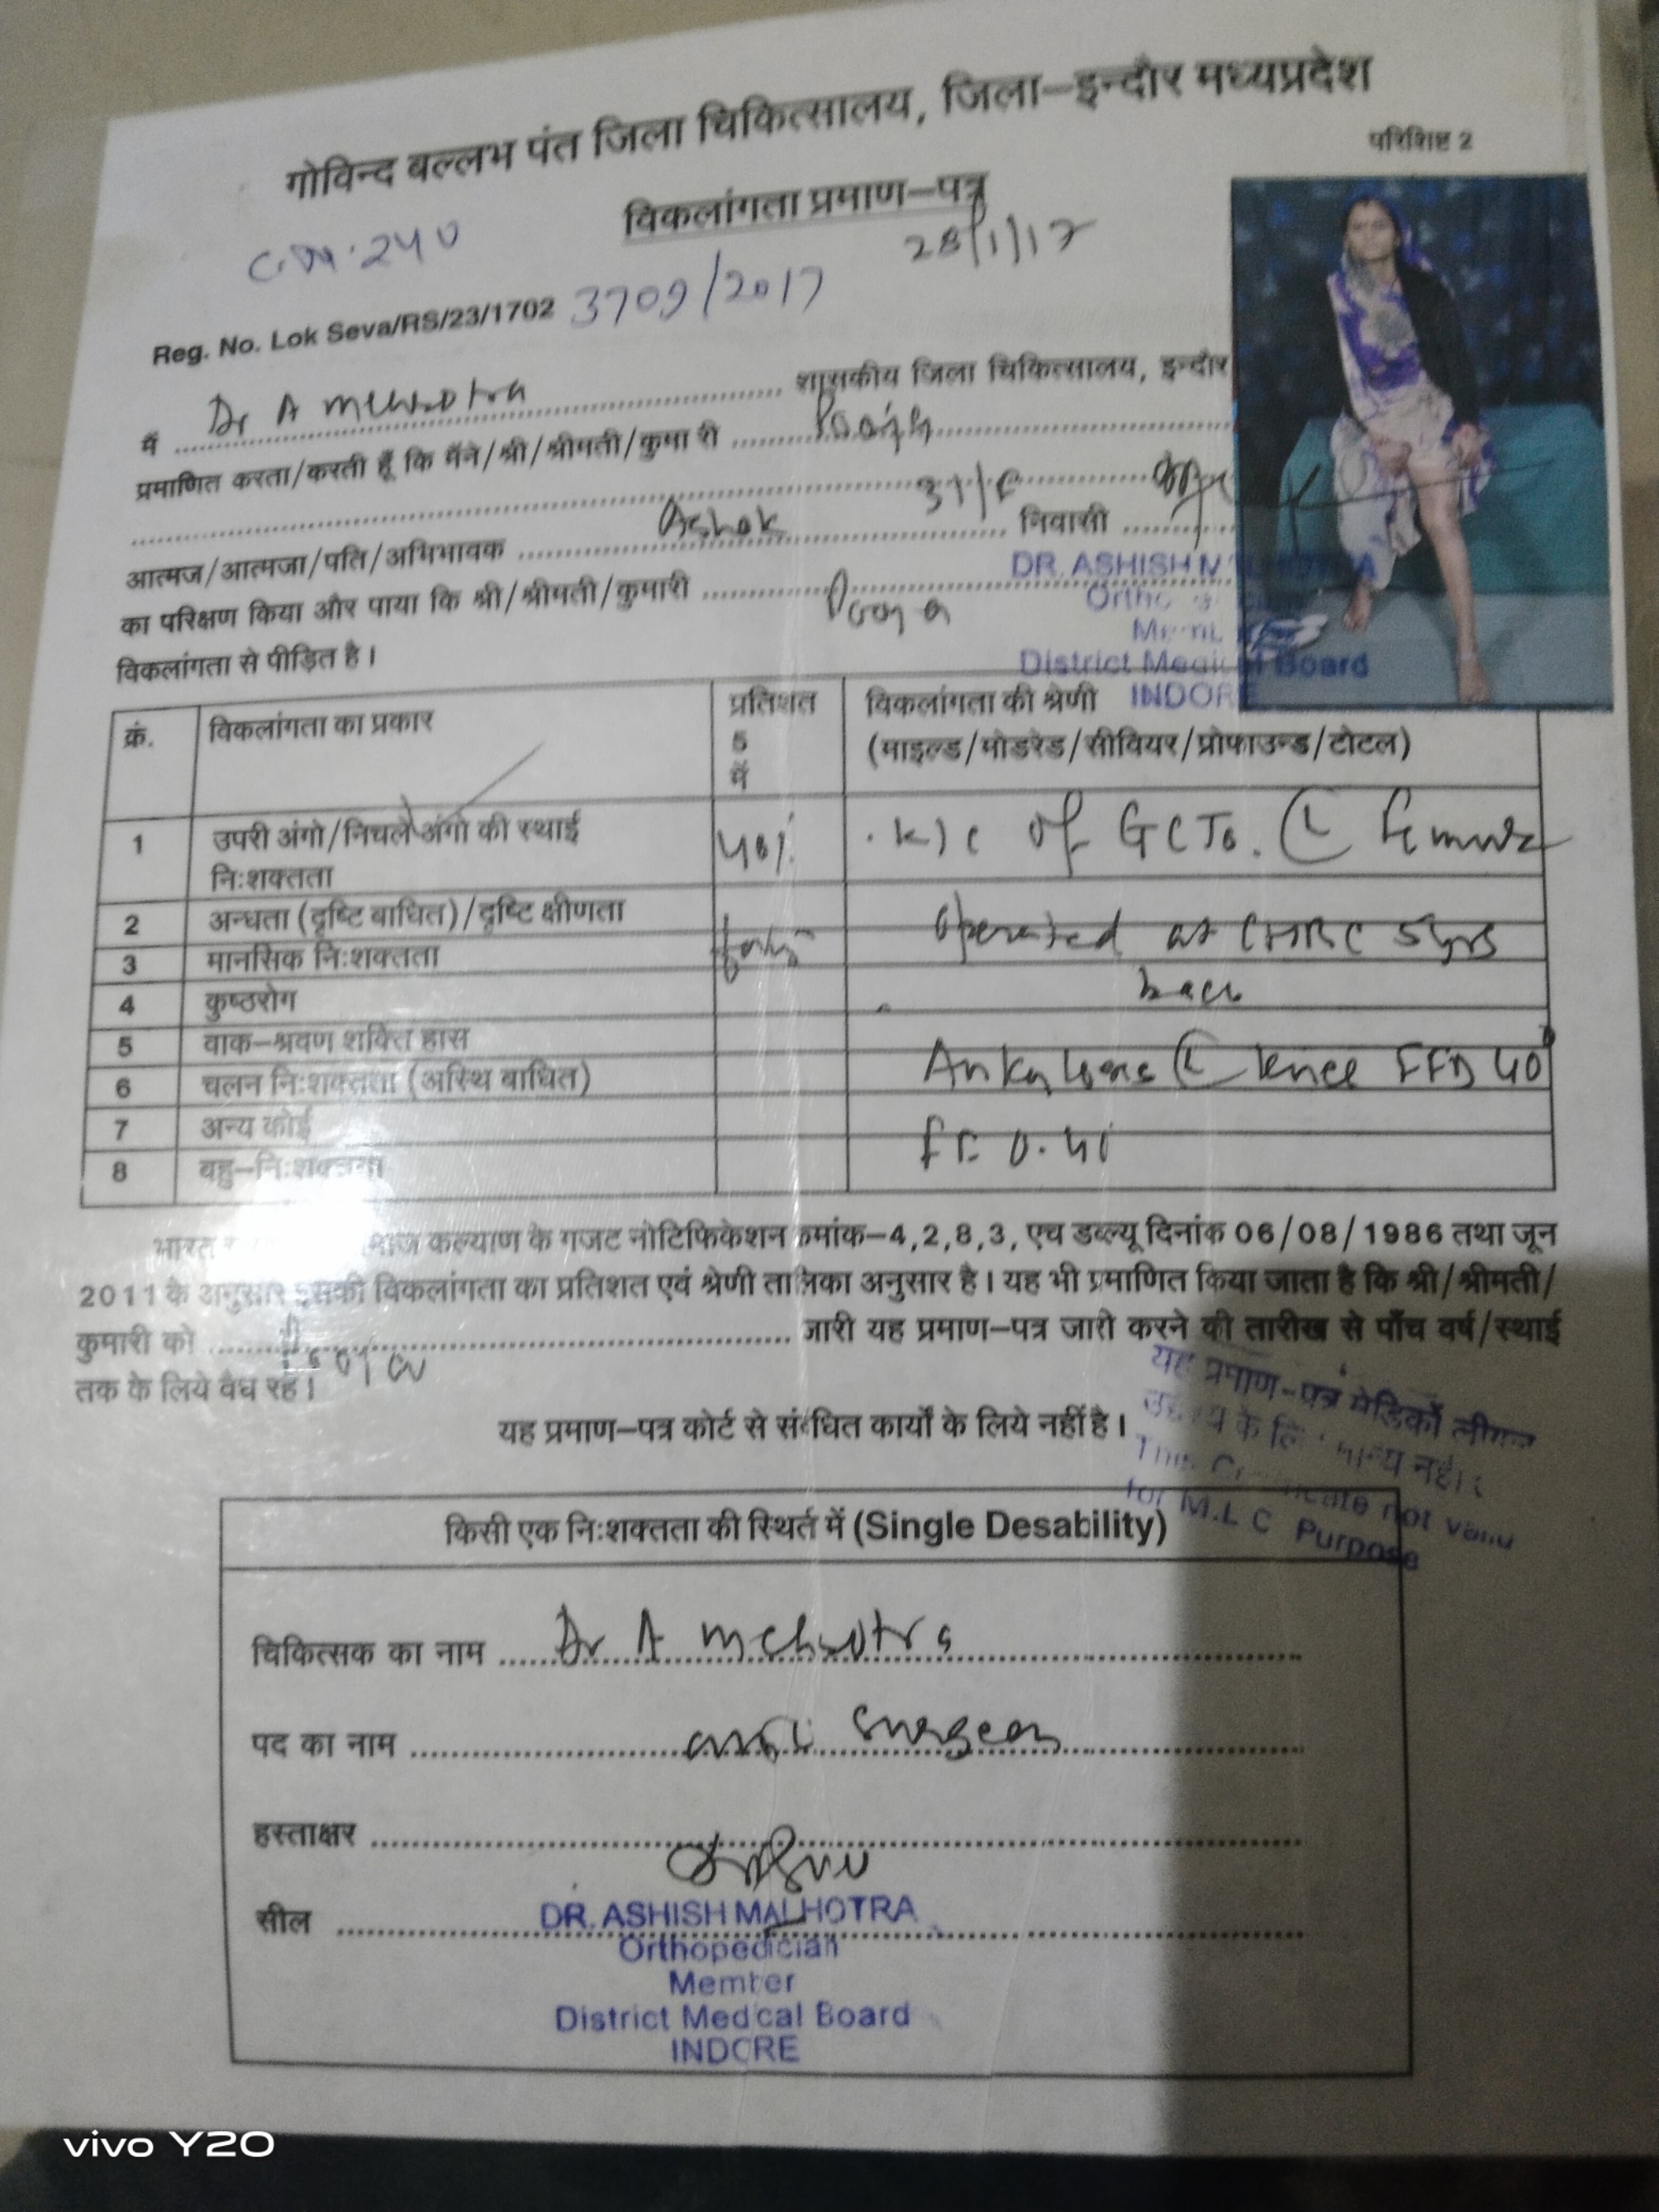 गोविन्द बल्लभ पंत जिला चिकित्सालय, जिला–इन्दौर मध्यप्रदेश
परिशिष्ट 2
विकलांगता प्रमाण–पत्र
28/1/17
Reg. No. Lok Seva/RS/23/1702 3709/2017
मैं Dr A शासकीय जिला चिकित्सालय, इन्दौर
प्रमाणित करता/करती हूँ कि मैंने/श्री/श्रीमती/कुमारी Pooja
31/F
आत्मज/आत्मजा/पति/अभिभावक Ashok निवासी
का परिक्षण किया और पाया कि श्री/श्रीमती/कुमारी Pooja
विकलांगता से पीड़ित है।
DR. ASHISH
District Medical Board
INDORE
क्रं. विकलांगता का प्रकार प्रतिशत 5 में विकलांगता की श्रेणी
(माइल्ड/मोडरेड/सीवियर/प्रोफाउन्ड/टोटल)
1 उपरी अंगो/निचले अंगो की स्थाई निःशक्तता 40% K/c of GCTo. (L) femur
2 अन्धता (दृष्टि बाधित)/दृष्टि क्षीणता operated at CHRC 5yrs
3 मानसिक निःशक्तता forty
4 कुष्ठरोग back
5 वाक–श्रवण शक्ति हास
6 चलन निःशक्तता (अस्थि बाधित) (L) knee FFD 40°
7 अन्य कोई
8 बहु–निःशक्तता
भारत कल्याण के गजट नोटिफिकेशन क्रमांक–4,2,8,3, एच डब्ल्यू दिनांक 06/08/1986 तथा जून
2011 के अनुसार इसकी विकलांगता का प्रतिशत एवं श्रेणी तालिका अनुसार है। यह भी प्रमाणित किया जाता है कि श्री/श्रीमती/
कुमारी को Pooja जारी यह प्रमाण–पत्र जारी करने की तारीख से पाँच वर्ष/स्थाई
तक के लिये वैध रहे।
यह प्रमाण–पत्र कोर्ट से संबंधित कार्यों के लिये नहीं है।
यह प्रमाण–पत्र मेडिको लीगल
उद्देश्य के लिए मान्य नहीं
This Certificate not valid
for M.L C Purpose
किसी एक निःशक्तता की स्थिर्त में (Single Desability)
चिकित्सक का नाम Dr A
पद का नाम surgeon
हस्ताक्षर
सील DR. ASHISH MALHOTRA
Orthopedician
Member
District Medical Board
INDORE
vivo Y20